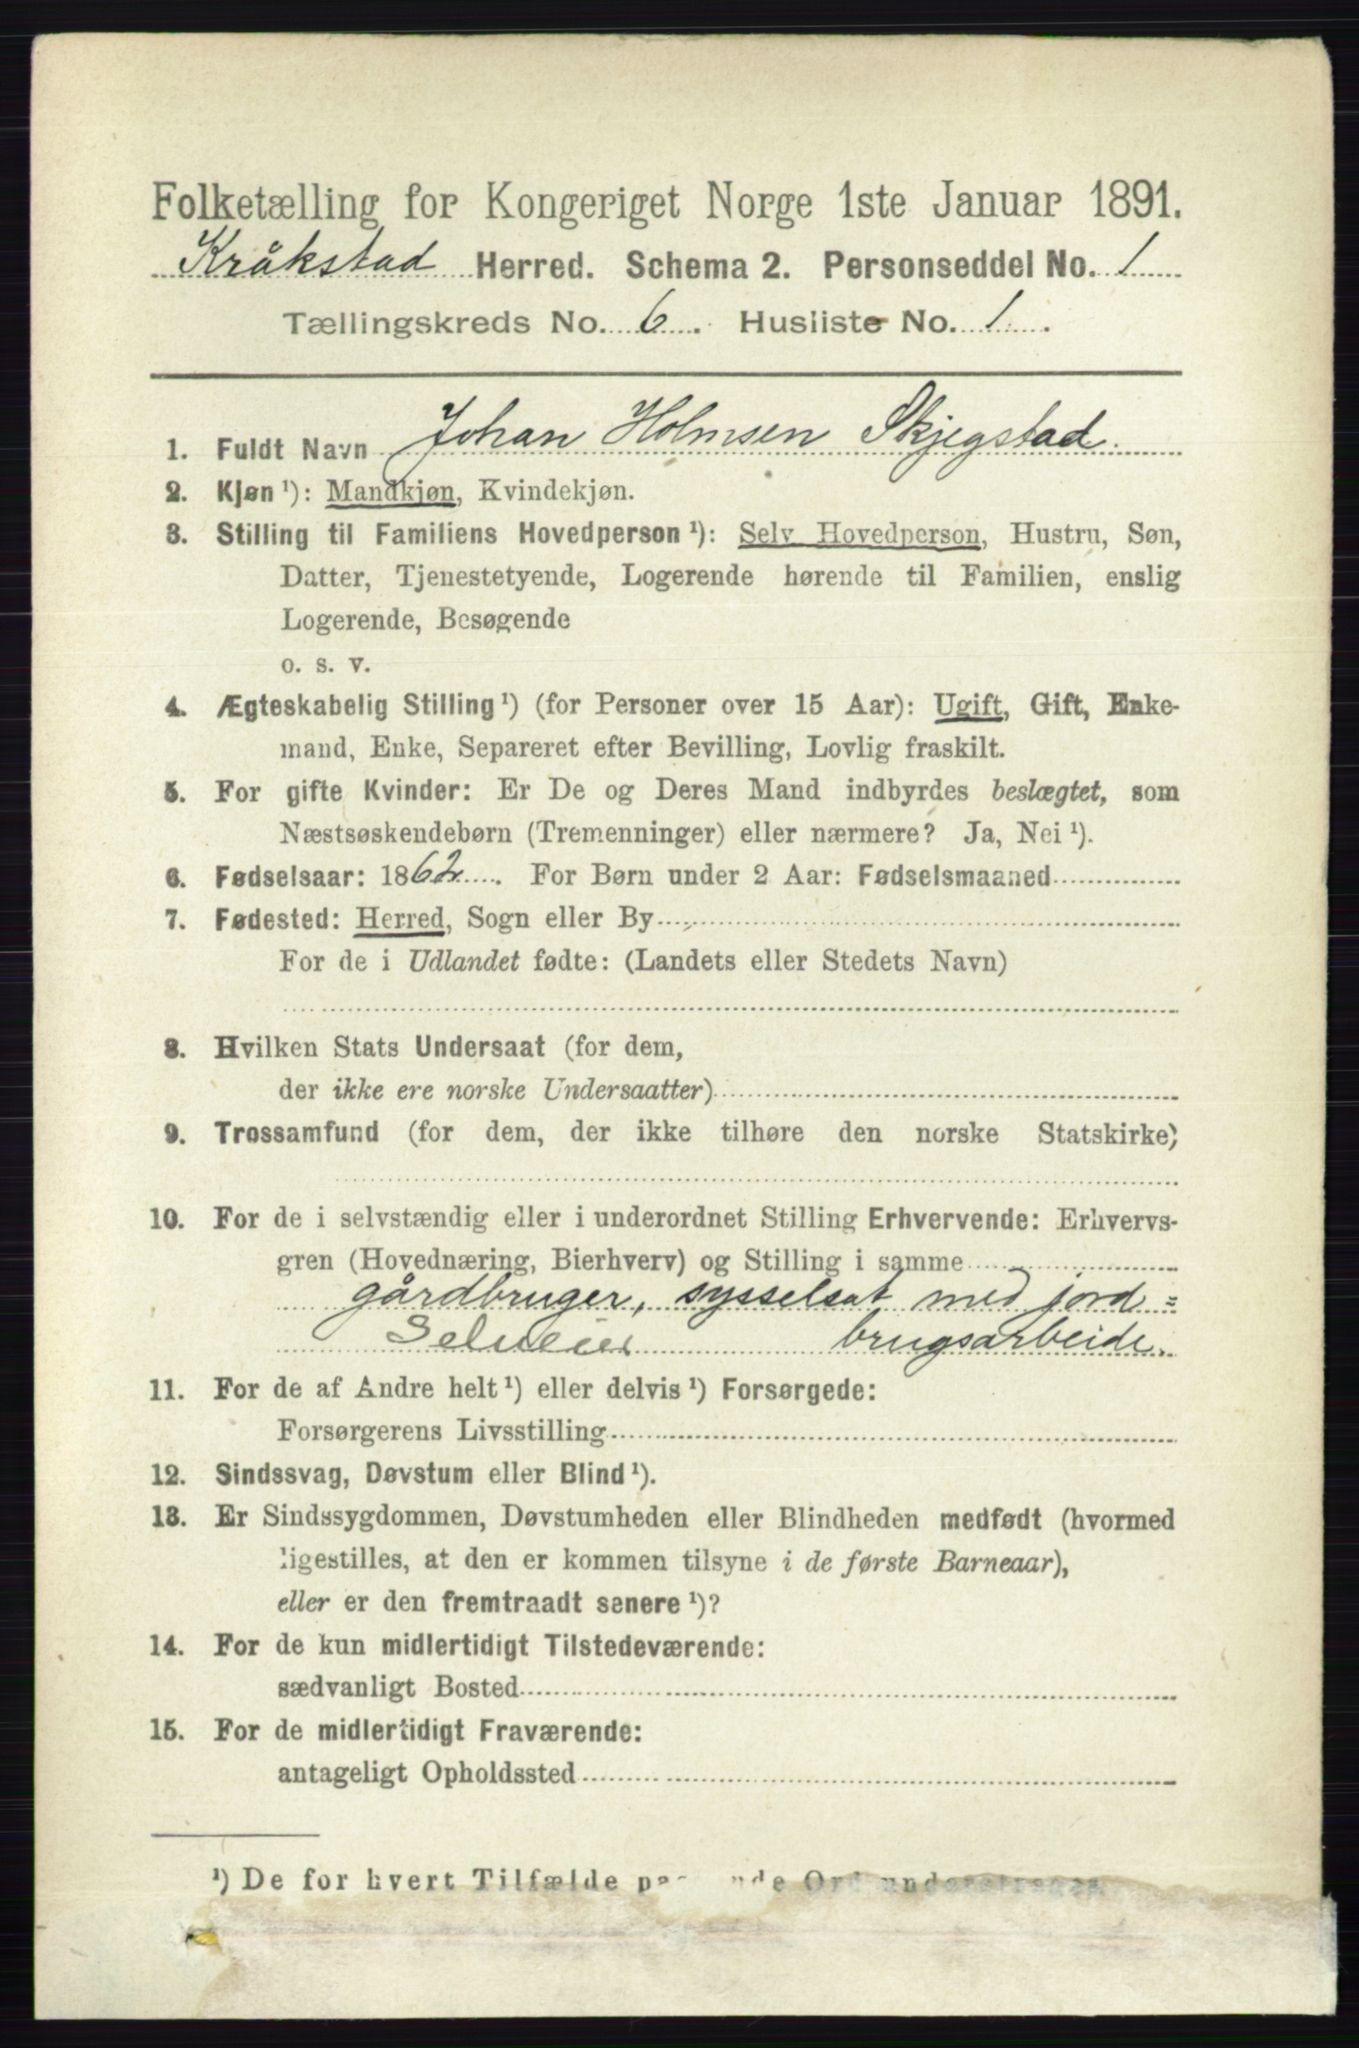 Folketælling for Kongeriget Norge 1ste Januar 1891.
Kråkstad Herred. Schema 2. Personseddel No. 1
Tællingskreds No. 6. Husliste No. 1.
1. Fuldt Navn Johan Holmsen Skjegstad.
2. Kjøn ¹): Mandkjøn, Kvindekjøn.
3. Stilling til Familiens Hovedperson ¹): Selv Hovedperson, Hustru, Søn,
Datter, Tjenestetyende, Logerende hørende til Familien, enslig
Logerende, Besøgende
o. s. v.
4. Ægteskabelig Stilling ¹) (for Personer over 15 Aar): Ugift, Gift, Enke-
mand, Enke, Separeret efter Bevilling, Lovlig fraskilt.
5. For gifte Kvinder: Er De og Deres Mand indbyrdes beslægtet, som
Næstsøskendebørn (Tremenninger) eller nærmere? Ja, Nei ¹).
6. Fødselsaar: 1862. For Børn under 2 Aar: Fødselsmaaned
7. Fødested: Herred, Sogn eller By
For de i Udlandet fødte: (Landets eller Stedets Navn)
8. Hvilken Stats Undersaat (for dem,
der ikke ere norske Undersaatter)
9. Trossamfund (for dem, der ikke tilhøre den norske Statskirke)
10. For de i selvstændig eller i underordnet Stilling Erhvervende: Erhvervs-
gren (Hovednæring, Bierhverv) og Stilling i samme
gårdbruger, sysselsat med jord=
Selveier brugsarbeide.
11. For de af Andre helt ¹) eller delvis ¹) Forsørgede:
Forsørgerens Livsstilling
12. Sindssvag, Døvstum eller Blind ¹).
13. Er Sindssygdommen, Døvstumheden eller Blindheden medfødt (hvormed
ligestilles, at den er kommen tilsyne i de første Barneaar),
eller er den fremtraadt senere ¹)?
14. For de kun midlertidigt Tilstedeværende:
sædvanligt Bosted
15. For de midlertidigt Fraværende:
antageligt Opholdssted
¹) De for hvert Tilfælde passende Ord understreges.